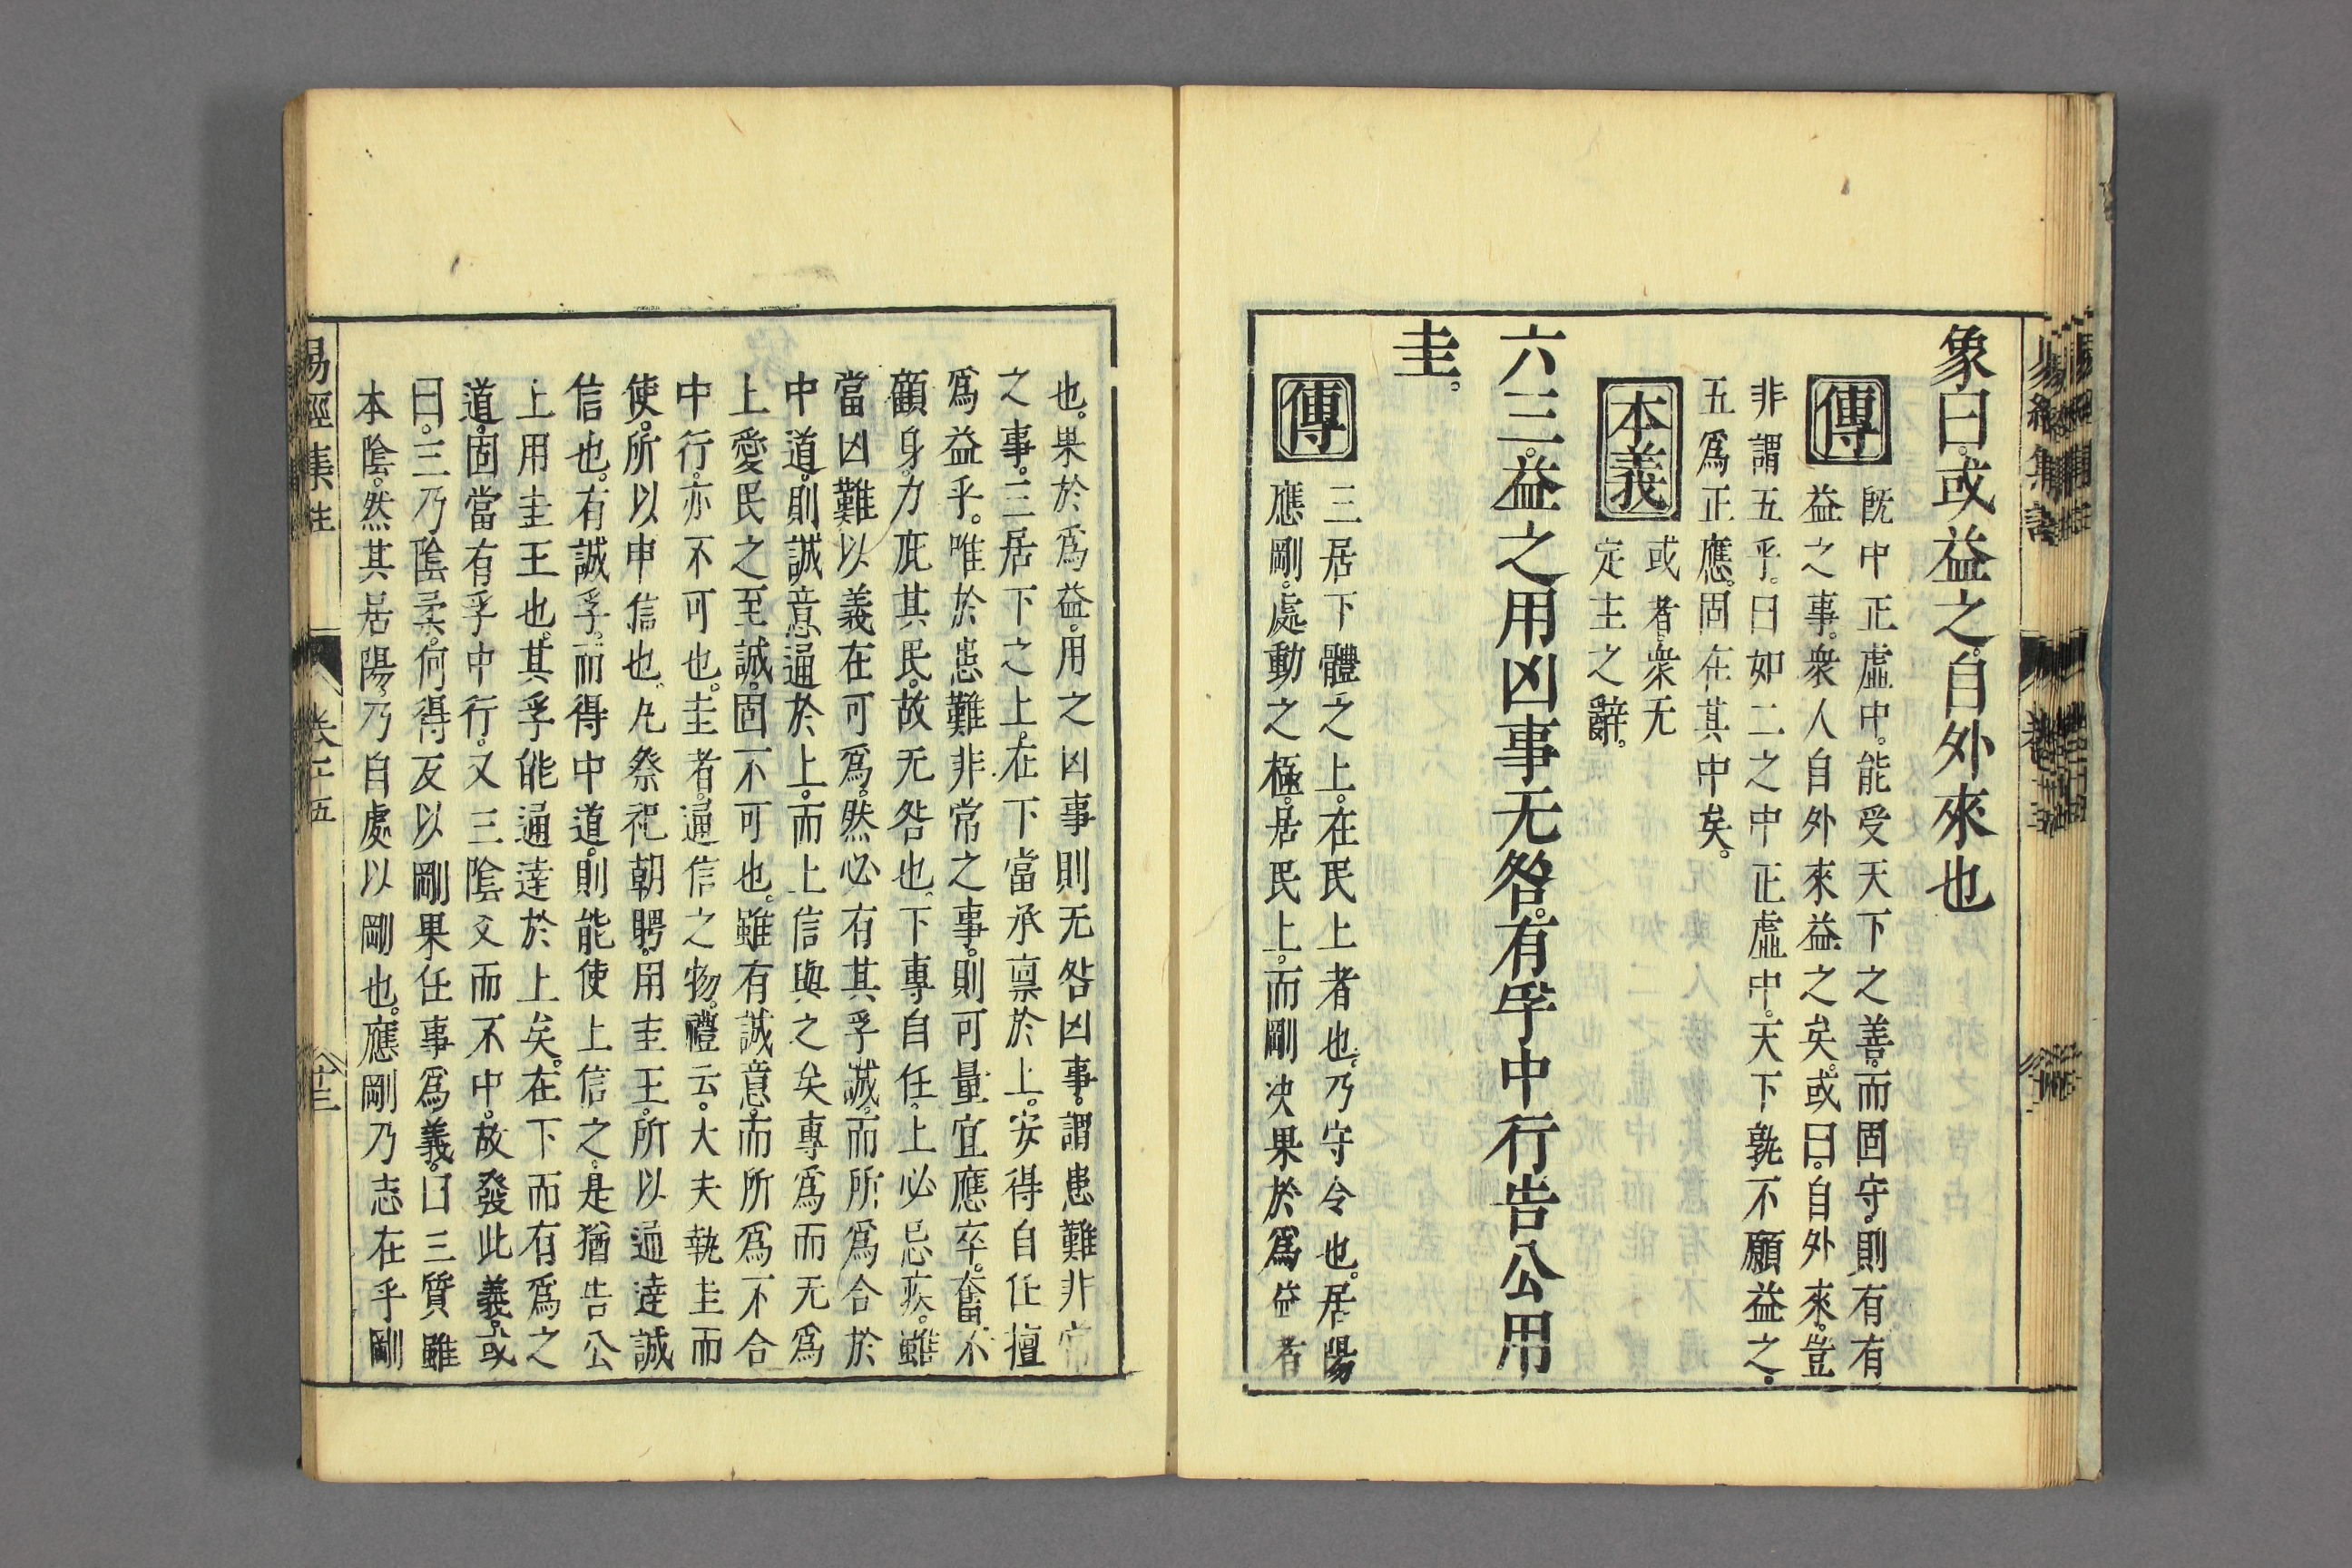 象曰。或益之。自外來也
傳
既中正虛中。能受天下之善。而固守。則有有
益之事。衆人自外來益之矣。或曰。自外來。豈
非謂五乎。曰如二之中正虛中。天下孰不願益之。
五爲正應。固在其中矣。
本義
或者。衆无
定主之辭。
六三。益之用凶事无咎。有孚中行告公用
圭。
傳
三居下體之上。在民上者也。乃守令也。居陽
應剛。處動之極。居民上。而剛决果於爲益者
也。果於爲益。用之凶事則无咎凶事。謂患難非常
之事。三居下之上。在下當承禀於上。安得自任擅
爲益乎。唯於患難非常之事。則可量宜應卒。奮不
顧身。力庇其民。故无咎也。下專自任。上必忌疾。雖
當凶難以義在可爲。然必有其孚誠。而所爲合於
中道。則誠意通於上。而上信與之矣專爲而无爲
上愛民之至誠。固不可也。雖有誠意。而所爲不合
中行。亦不可也。圭者。通信之物。禮云。大夫執圭而
使。所以申信也。凡祭祀朝聘。用圭玉。所以通達誠
信也。有誠孚。而得中道。則能使上信之。是猶告公
上用圭玉也。其孚能通達於上矣。在下而有爲之
道。固當有孚中行。又三陰爻而不中。故發此義。或
曰。三乃陰柔。何得反以剛果任事爲義。曰三質雖
本陰。然其居陽。乃自處以剛也。應剛乃志在乎剛
易經集註
卷十五
廿三